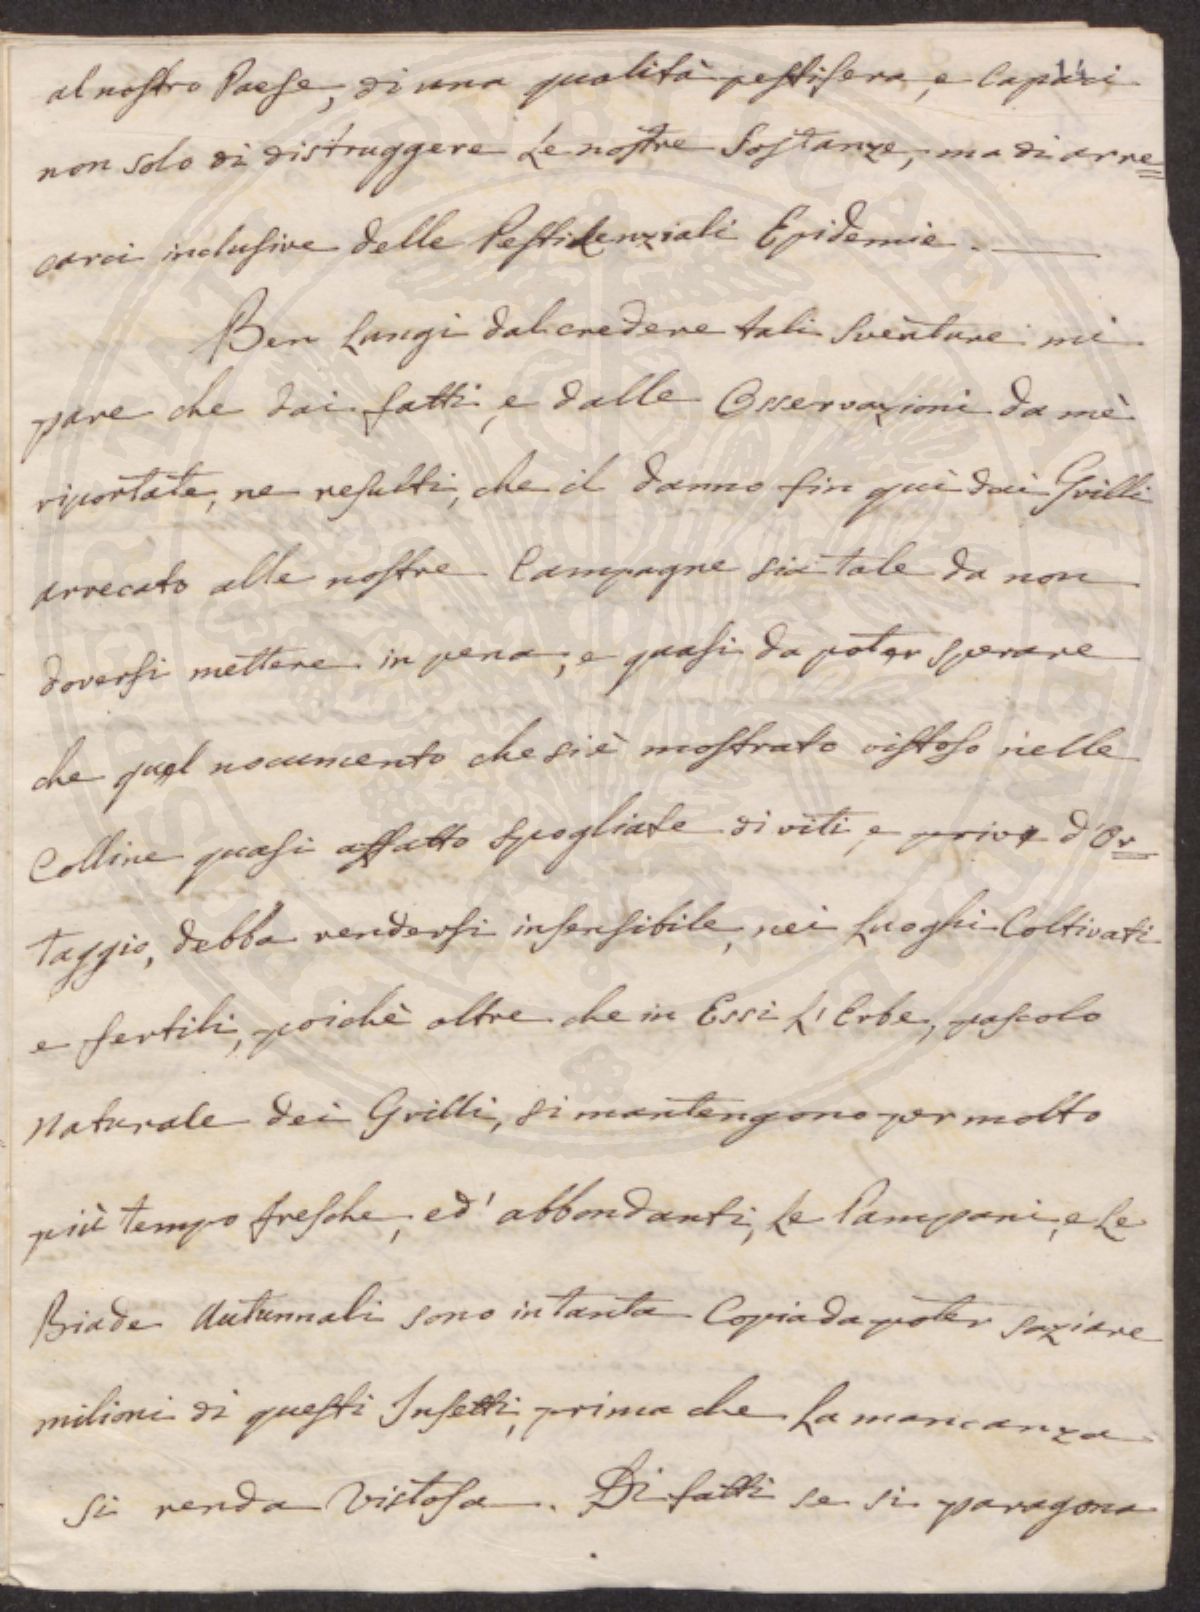 al nostro Paese, di una qualità pestifera, e Capaci
non solo di distruggere Le nostre Sostanze, ma di arre=
carci inclusive delle Pestilenziali Epidemie. —
Ben Lungi dal credere tali sventure mi
pare che dai fatti, e dalle Osservazioni da mè
riportate, ne resulti, che il danno fin quì dai Grilli
arrecato alle nostre Campagne sia tale da non
doversi mettere in pena, e quasi da poter sperare
che quel nocumento che si è mostrato vistoso nelle
Colline quasi affatto spogliate di viti, e prive d'Or=
taggio, debba rendersi insensibile, nei Luoghi Coltivati
e fertili, poichè oltre che in Essi L'Erbe, pascolo
Naturale dei Grilli, si mantengono per molto
più tempo fresche, ed' abbondanti, Le Pampani, e Le
Biade Autunnali sono in tanta Copia da poter saziare
milioni di questi Insetti, prima che La mancanza
si renda Vistosa. Di fatti se si paragona